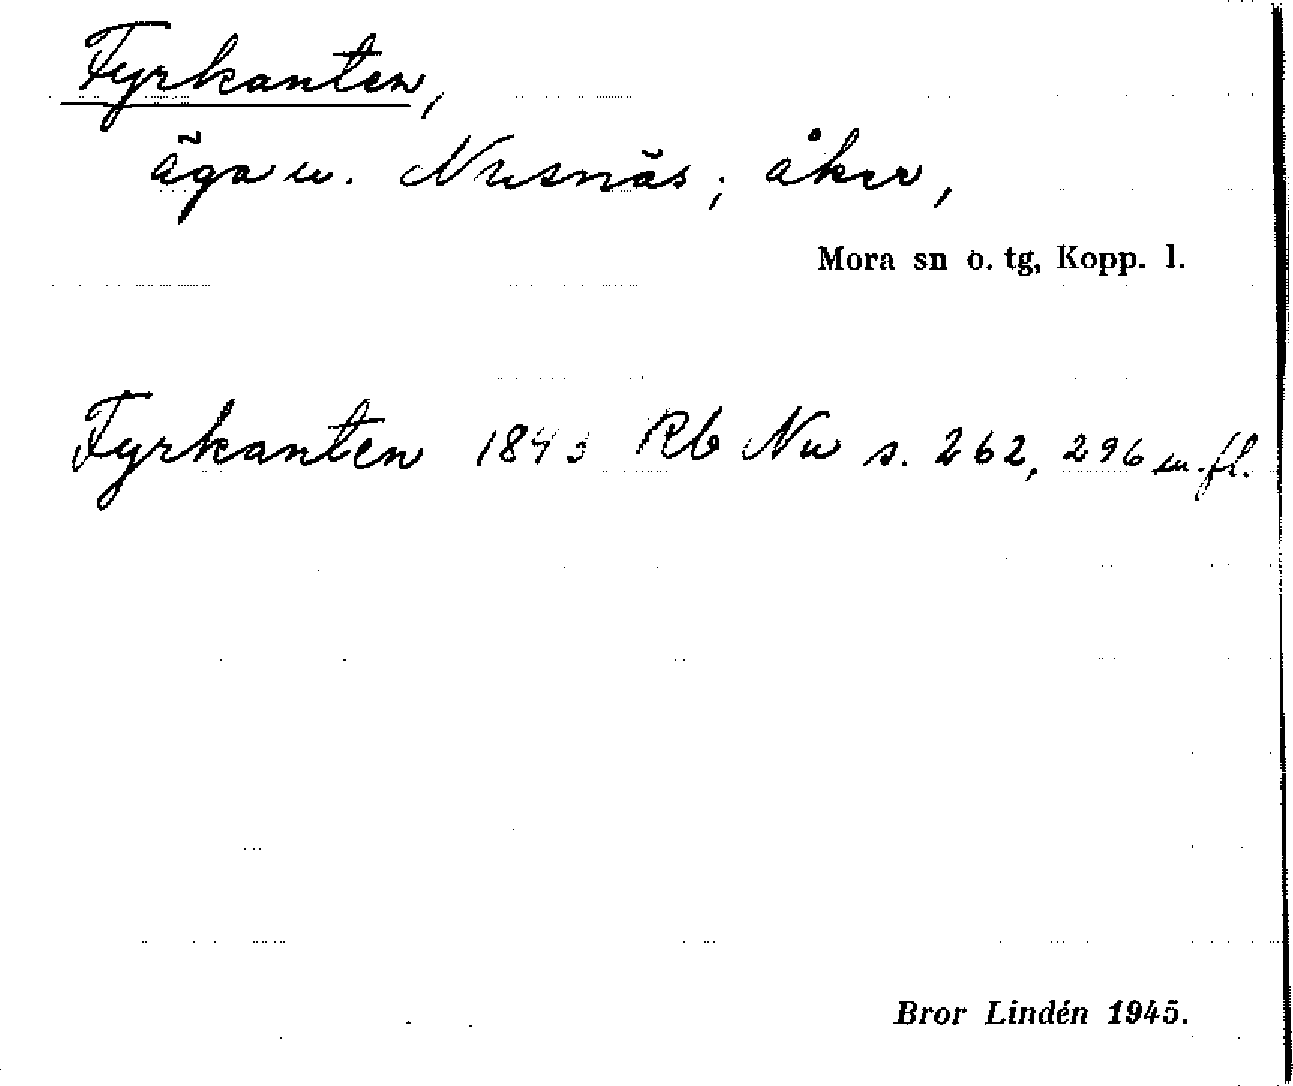 Fyrkanten,
äga u. Nusnäs; åker,
Mora sn o. tg, Kopp. l.
Fyrkanten 1843 Rb Nu s. 262, 296 m.fl.
Bror Lindén 1945.